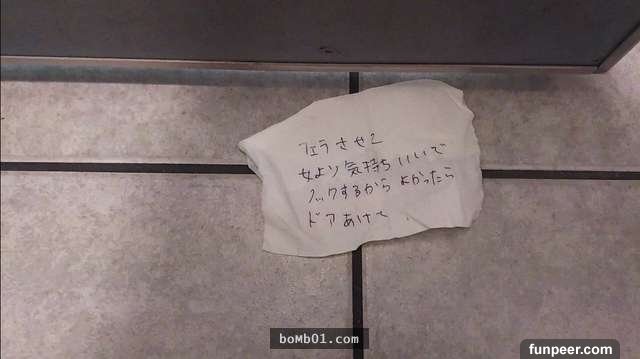 フェラさせて
女より気持ちいいで
ノックするからよかったら
ドアあけて
boMb01.com
funpeer.com